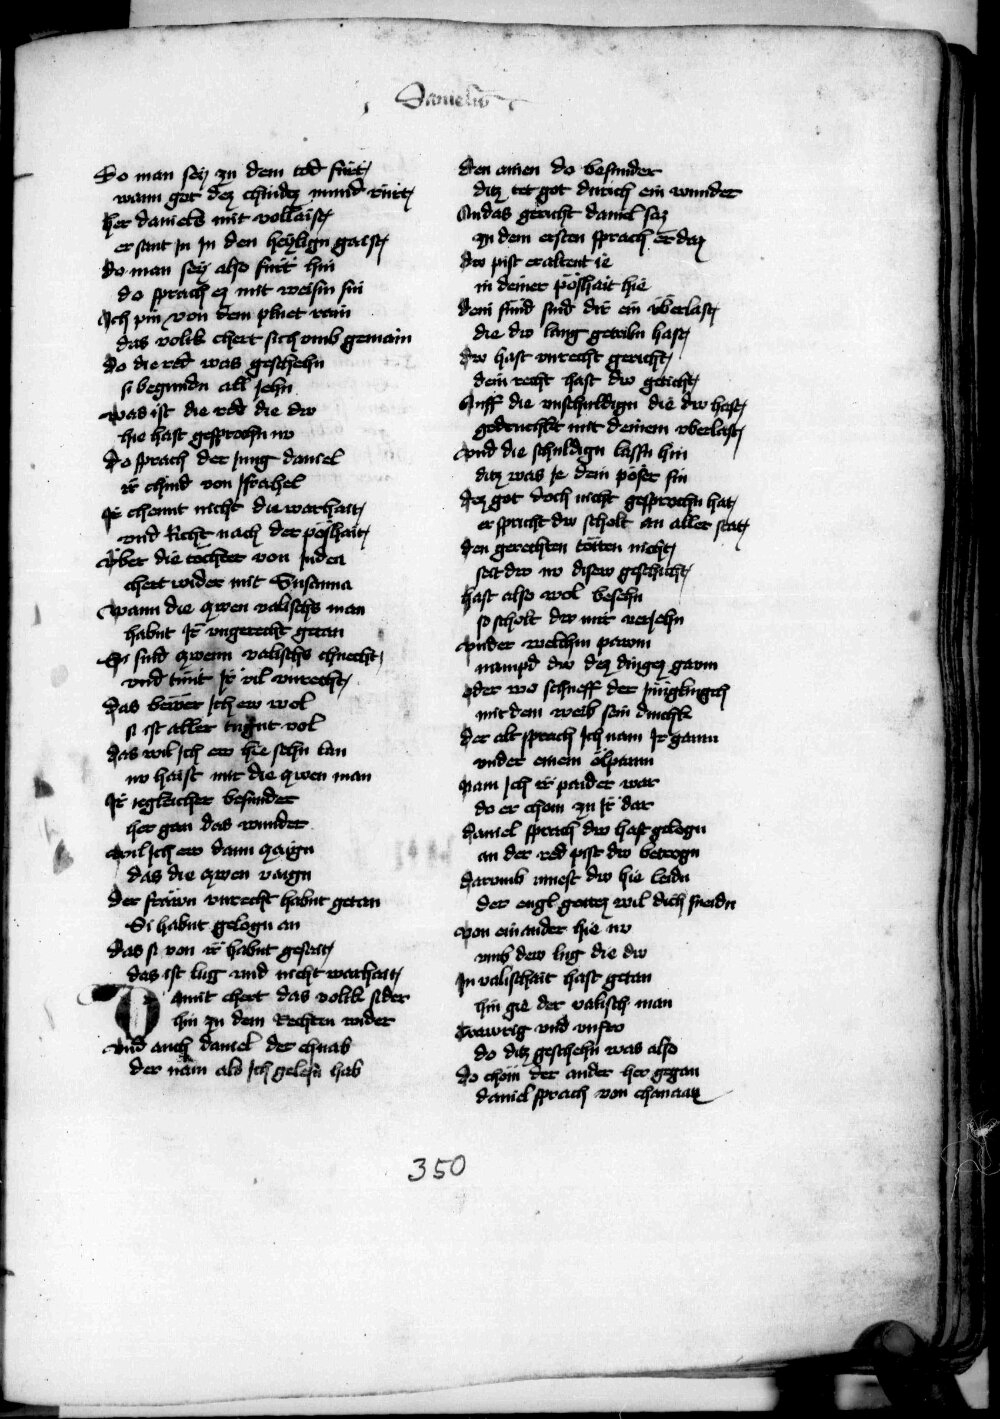 Danielis
Do man sey zu dem tod fürt
wann got dez chindez mund rürt
her daniels mit vollaist
er sant In In den heylign gaist
do man sey also fürt hin
do sprach ez mit weisin sin
Ich pin von dem pluet rain
das volkk chert sich vmb gemain
do die red was geschehn
si begundn all Jehn
was ist die red die dw
hie hast gesprochn nw
do sprach der Jung daniel
ir chind von Israhel
Ir chennt nicht die warhait
vnd Richt nach der poshait
Vber die tochter von Juden
chert wider mit Susanna
wann die zwen valischs man
habnt Ir vngerecht getan
Si sind zwenn valischs chnecht
vnd tünt Ir vil vnrecht
das bewer Ich ew wol
si ist aller tugnt vol
das wil Ich ew hie sehn lan
nw haist mir die zwen man
Ir iegleicher besunder
her gan das wunder
wil Ich ew dann zaign
das die zwen vaign
der frawn vnrecht habnt getan
Si habnt gelogn an
das si von ir habnt gesait
das ist lug vnd nicht warhait
Damit chert das volkk sider
hin zu dem Rechten wider
vnd auch daniel der chnab
der nam als Ich gelesn hab
den ainen do besunder
ditz tet got durich ein wunder
An das gericht daniel saz
zu dem ersten sprach er daz
dw pist eraltent ie
in deiner poshait hie
dein sund sind dir ein vberlast
die dw lang getribn hast
dw hast vnrecht gericht
dein recht hast dw geticht
Auff die vnschuldign die dw hast
gedruchkt mit deinem vberlast
vnd die schuldign lassn hin
ditz was Je dein poser sin
dez got doch nicht gesprochn hat
er spricht dw scholt an aller stat
den gerechten tötten nicht
seit dw nw disew geschicht
hast also wol besehn
so scholt dw mir verjehn
vnder welchm pawm
nampd dw dez dinges gawm
oder wo schueff der Jünglingch
mit dem weib sein dinchk
der alt sprach Ich nam Ir gawm
vnder einem ölpawm
nam Ich ir paider war
do er chom zu ir dar
daniel sprach dw hast gelogn
an der red pist dw betrogn
darvmb muest dw hie leidn
der engl gottez wil dich sneidn
von einander hie nw
vmb dew lug die dw
In valischait hast getan
hin gie der valisch man
trawrig vnd vnfro
do ditz geschehn was also
do chom der ander her gegan
daniel sprach von chanaan
350